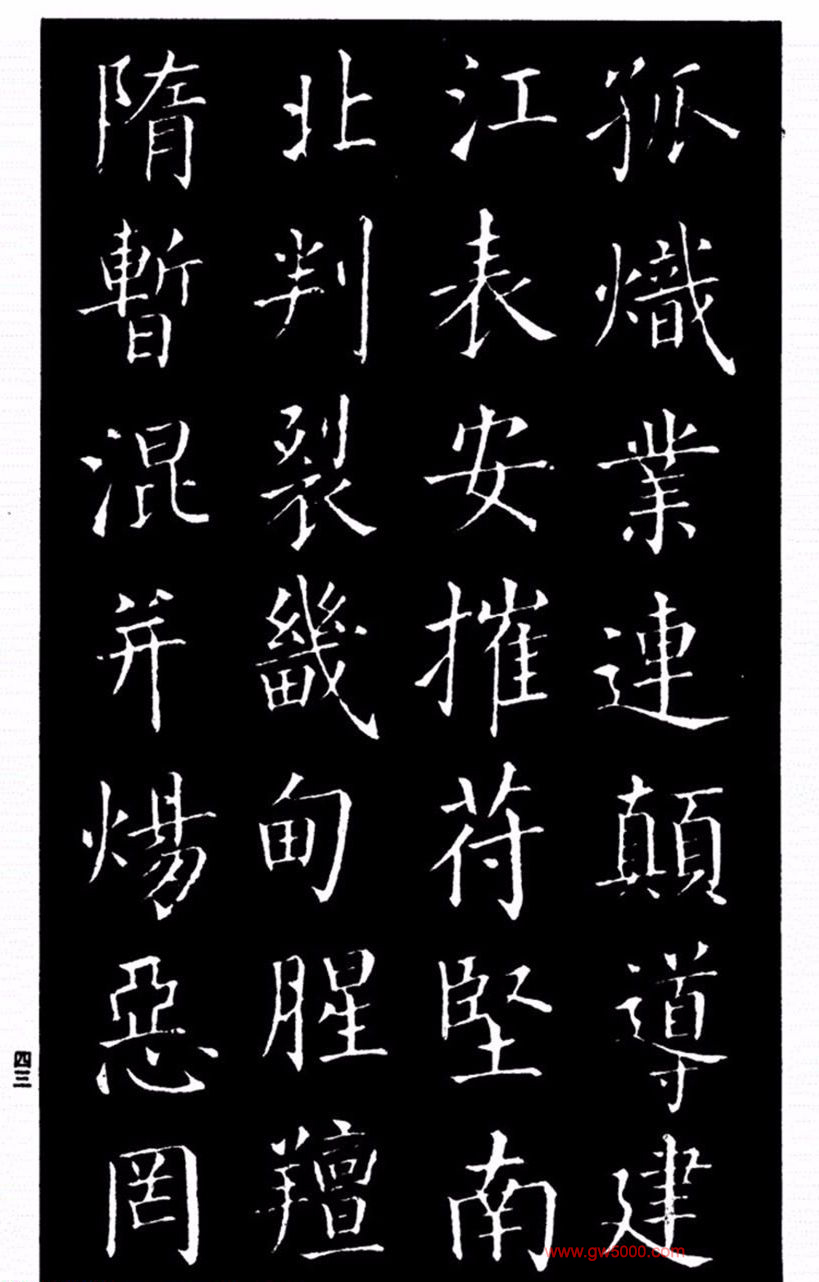 孤熾業連顛導建
江表安摧苻堅南
北判裂畿甸腥羶
隋暫混并煬惡罔
四三
www.gw5000.com